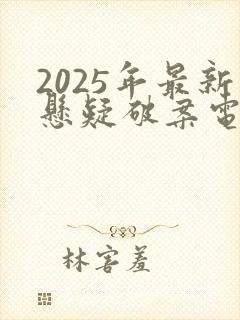 2025年最新
悬疑破案电
林害羞